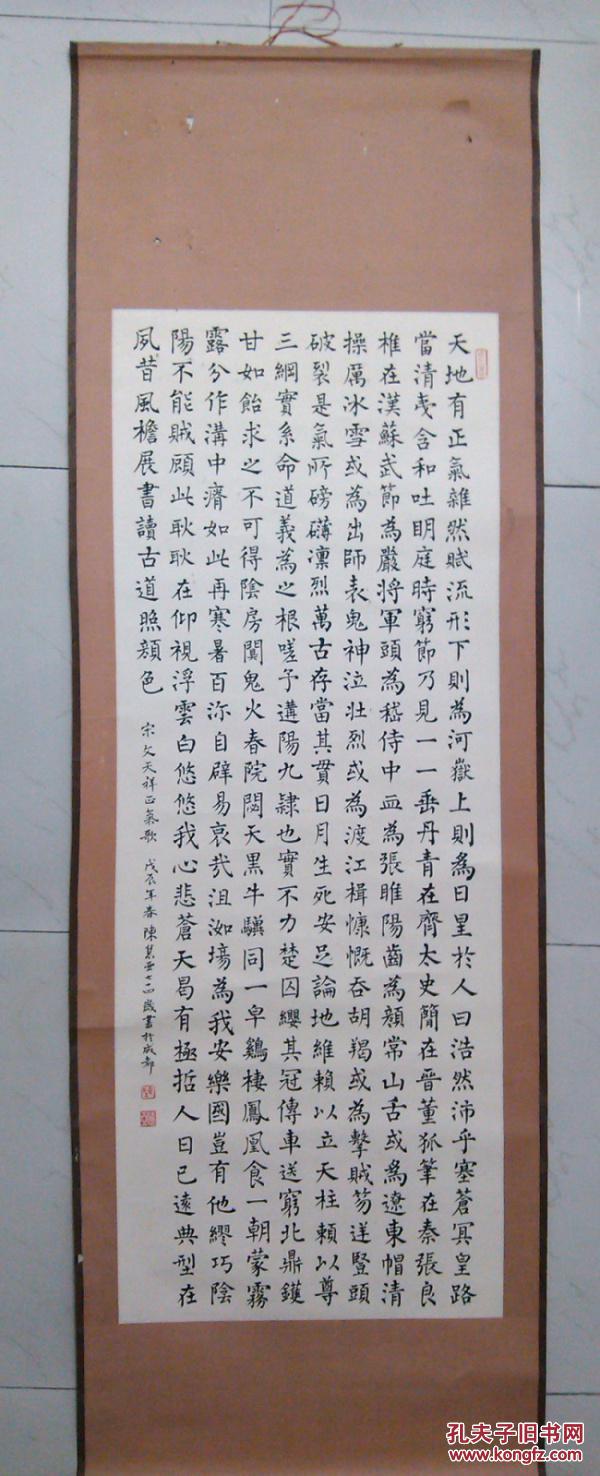 天地有正氣雜然賦流形下則為河嶽上則為日星於人曰浩然沛乎塞蒼冥皇路
當清夷含和吐明庭時窮節乃見一一垂丹青在齊太史簡在晉董狐筆在秦張良
椎在漢蘇武節為嚴將軍頭為嵇侍中血為張睢陽齒為顏常山舌或為遼東帽清
操厲冰雪或為出師表鬼神泣壯烈或為渡江楫慷慨吞胡羯或為擊賊笏逆豎頭
破裂是氣所磅礴凜烈萬古存當其貫日月生死安足論地維賴以立天柱賴以尊
三綱實系命道義為之根嗟予遘陽九隸也實不力楚囚纓其冠傳車送窮北鼎鑊
甘如飴求之不可得陰房闃鬼火春院閟天黑牛驥同一皁鷄棲鳳凰食一朝蒙霧
露分作溝中瘠如此再寒暑百沴自辟易哀哉沮洳場為我安樂國豈有他繆巧陰
陽不能賊顧此耿耿在仰視浮雲白悠悠我心悲蒼天曷有極哲人日已遠典型在
夙昔風檐展書讀古道照顏色
宋文天祥正氣歌 戊辰年春陳 歲書於成都
孔夫子旧书网
www.kongfz.com